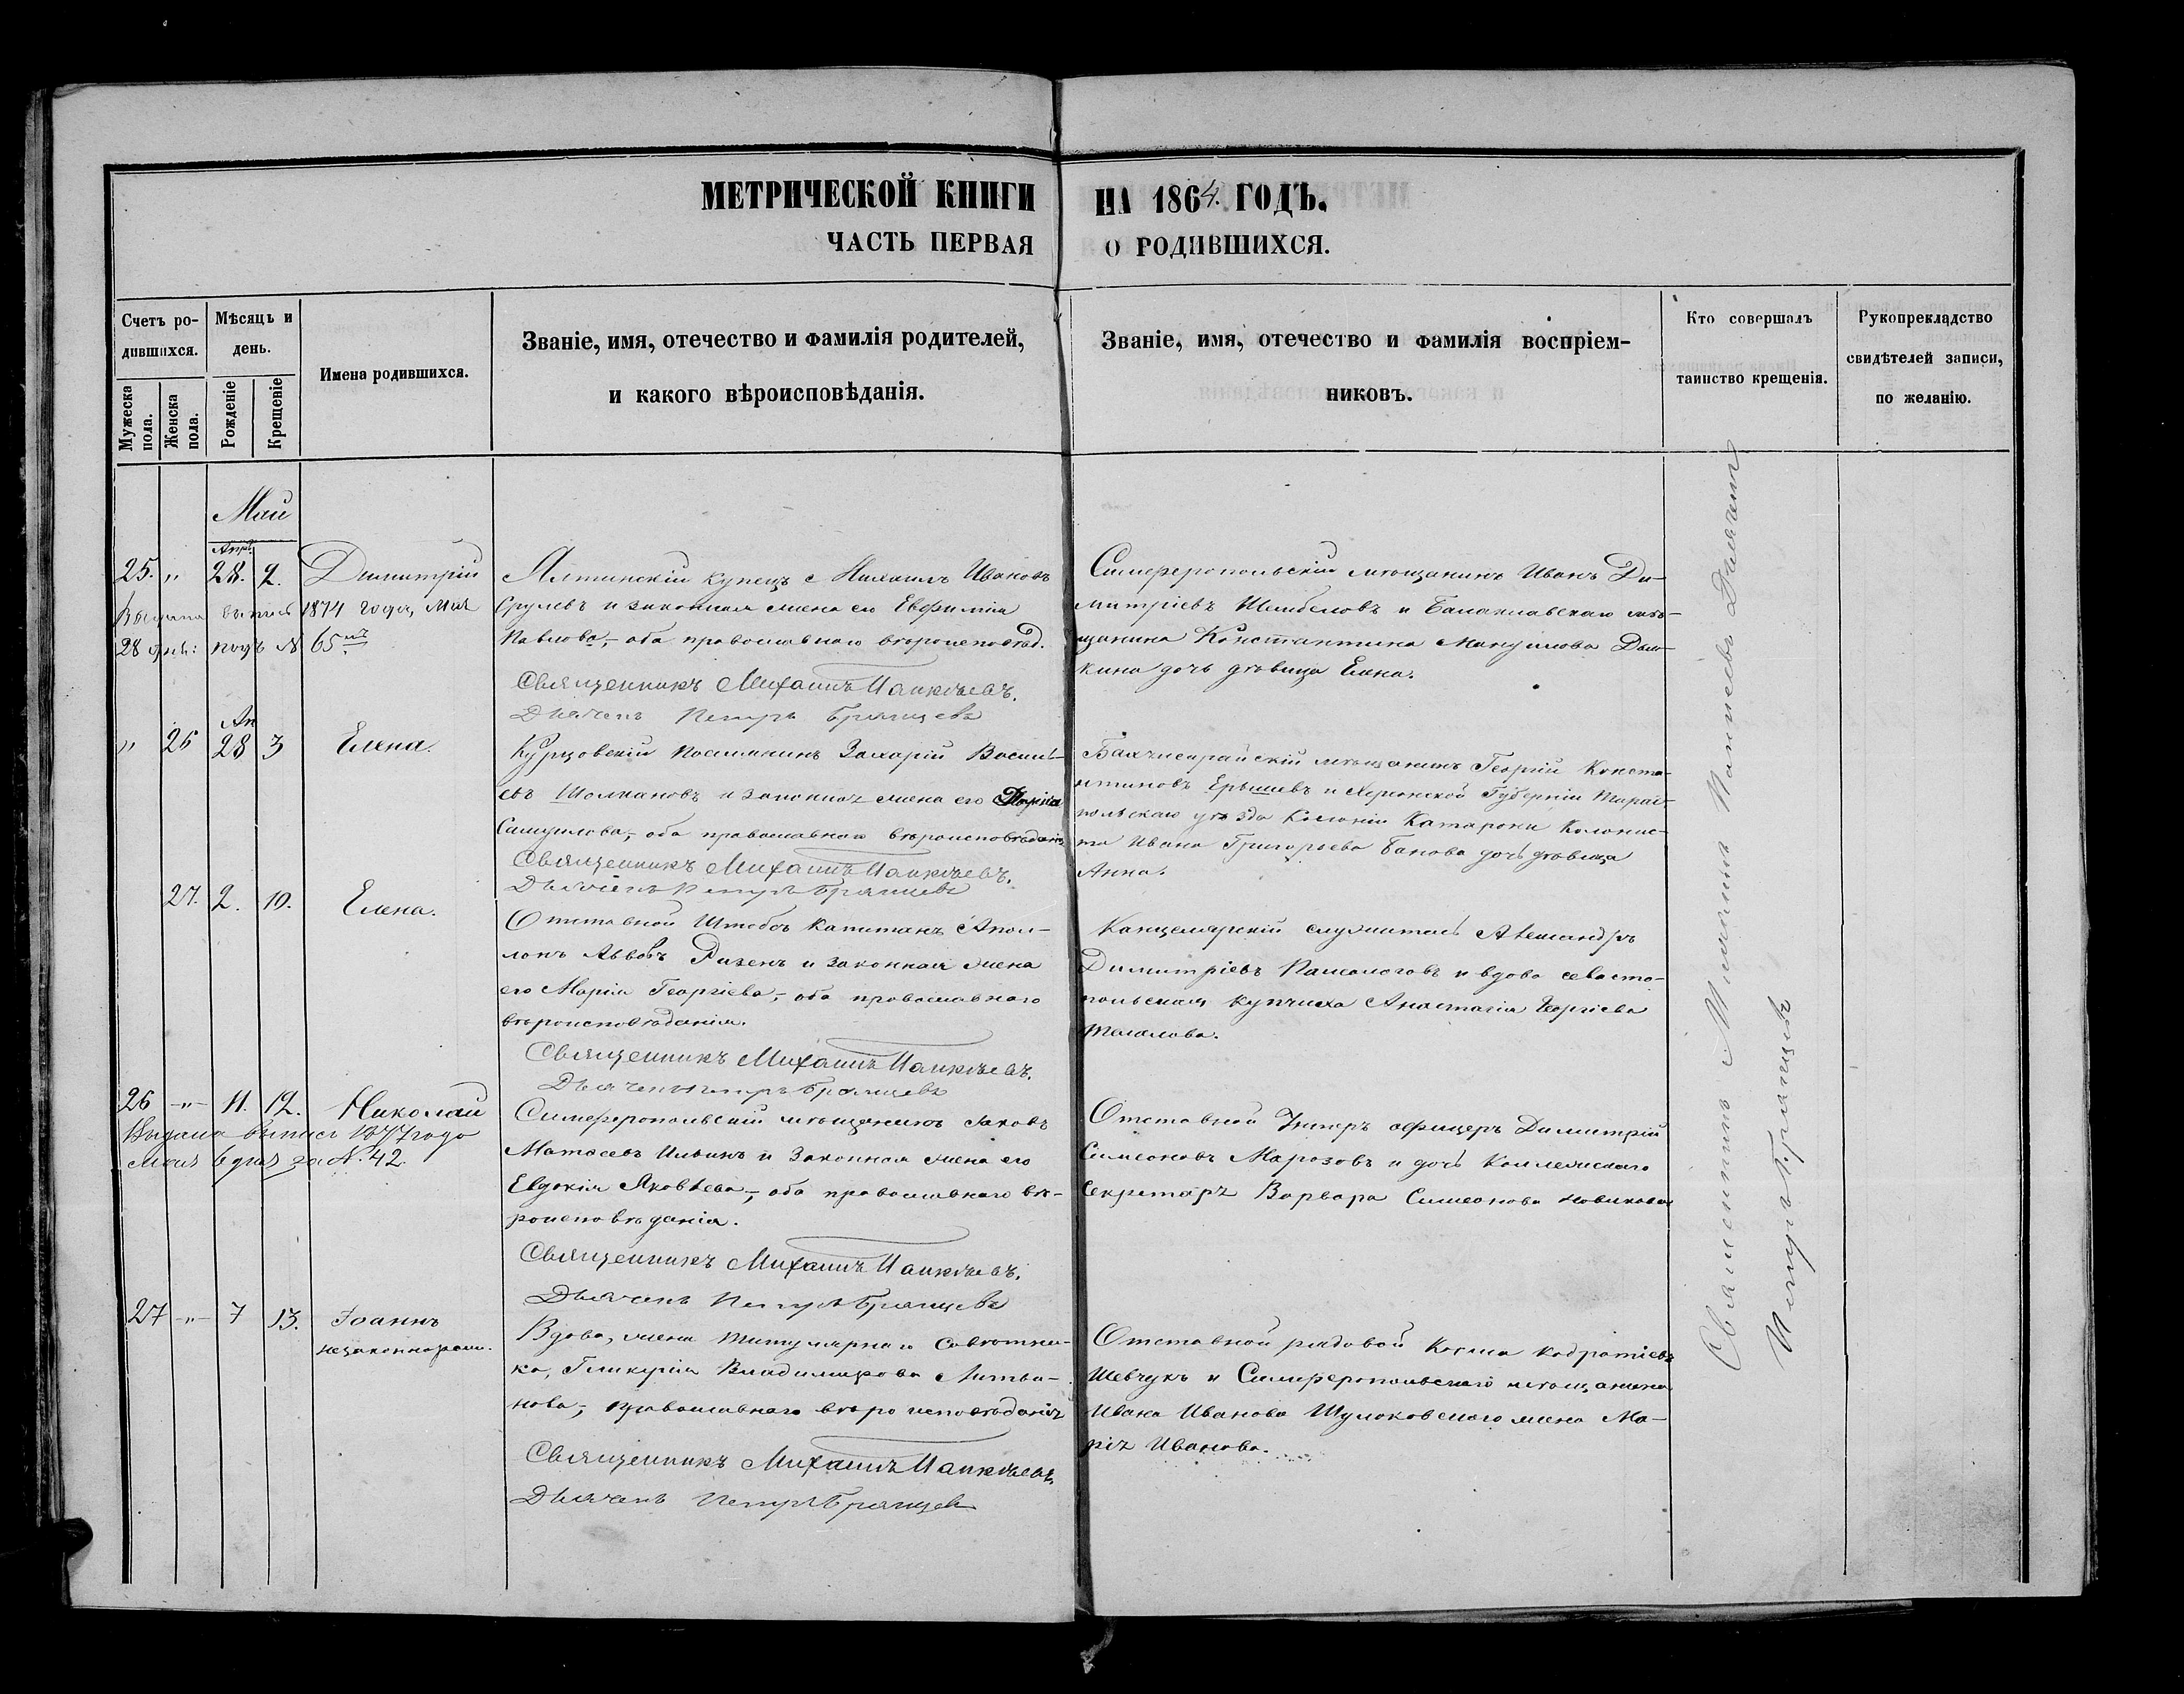 МЕТРИЧЕСКОЙ КНИГИ НА 1864. ГОДЪ.
ЧАСТЬ ПЕРВАЯ О РОДИВШИХСЯ.
Счетъ ро-
дившихся.
Мужеска пола.
Женска пола.
Мѣсяць и
день.
Рожденіе
Крещеніе
Имена родившихся.
Званіе, имя, отечество и фамилія родителей,
и какого вѣроисповѣданія.
Званіе, имя, отечество и фамилія воспріем-
никовъ.
Кто совершалъ
таинство крещенія.
Рукоприкладство
свидѣтелей записи,
по желанію.
Май
Апр.
25. " 28. 2. Димитрій
Выдана выпись 1874 года, Мая
28 дня: подъ № 65мъ
Ялтинскій купецъ Михаилъ Ивановъ
и законная жена его Евфимія
Павлова, оба православнаго вѣроисповѣд.
Священникъ Михаилъ
Дьячекъ Петръ Брянцевъ
Симферопольскій мѣщанинъ Иванъ Ди-
митріевъ и Балаклавскаго мѣ-
щанина Константина Мануилова
кина дочь дѣвица Елена.
Ап
" 26 28 3 Елена.
Курцовскій поселянинъ Захарій Василь-
евъ Шолкановъ и законная жена его Марія
Самуилова, оба православнаго вѣроисповѣданія
Священникъ Михаилъ
Дьячекъ Петръ Брянцевъ
Бахчисарайскій мѣщанинъ Георгій Конста-
нтиновъ Ерышевъ и Херсонской Губерніи Тирас-
польскаго уѣзда Колоніи Катаржи Колонис-
та Ивана Григорьева Банова дочь дѣвица
Анна.
27. 2. 10. Елена.
Отставной Штабсъ Капитанъ Апол-
лонъ Львовъ Ризенъ и законная жена
его Марія Георгіева, оба православнаго
вѣроисповѣданія.
Священникъ Михаилъ
Дьячекъ Петръ Брянцевъ
Канцелярскій служитель Александръ
Димитріевъ Палеологовъ и вдова севасто-
польская купчиха Анастасія Георгіева
26 -"- 11. 12. Николай
Выдана выпись 1877 года
мая 6 дня за №. 42.
Симферопольскій мѣщанинъ Іаковъ
Матѳеевъ Ильинъ и Законная жена его
Евдокія Яковлева, оба православнаго вѣ-
роисповѣданія.
Священникъ Михаилъ
Дьячекъ Петръ Брянцевъ
Отставной Унтеръ офицеръ Димитрій
Симеоновъ Марозовъ и дочь Коллежскаго
Секретаря Варвара Симеонова Новикова
27 -"- 7 13. Іоаннъ
незаконнорожд.
Вдова, жена Титулярнаго Совѣтни-
ка, Гликерія Владимирова Литви-
нова, православнаго вѣроисповѣданія
Священникъ Михаилъ
Дьячекъ Петръ Брянцевъ
Отставной рядовой Косма Кодратіевъ
Шевчукъ и Симферопольскаго мѣщанина
Ивана Иванова жена Ма-
рія Иванова.
Священникъ Михаилъ Дьячекъ
Петръ Брянцевъ